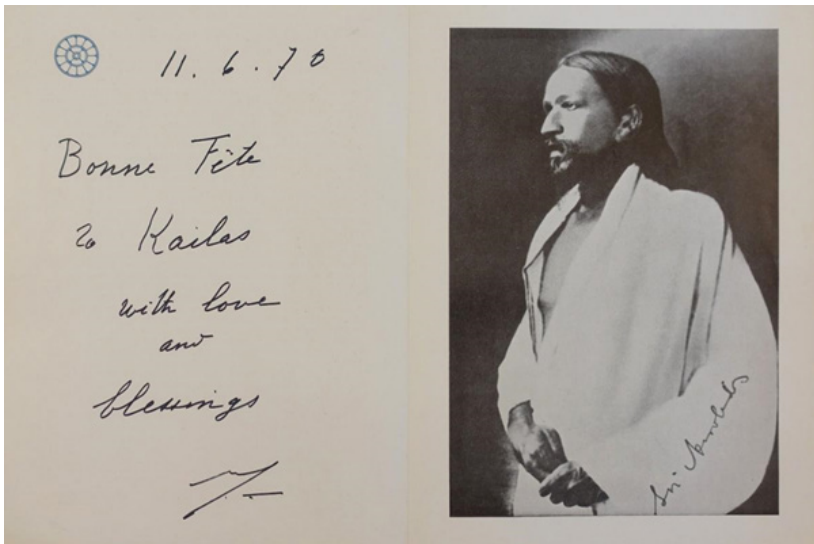 11.6.70
Bonne Fête
to Kailas
with love
and
blessings
Sri Aurobindo